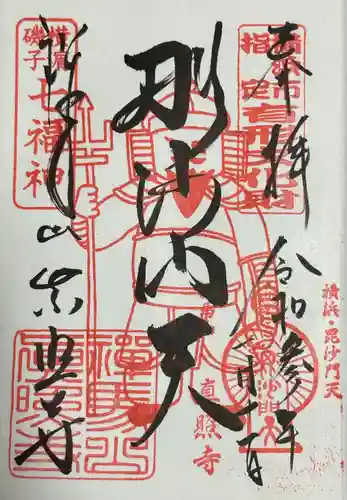 奉拝
横浜市
指定有形文化財
令和参年
横浜・毘沙門天
毘沙門天
真照寺
横浜
磯子
七福神
禅馬山
真照寺